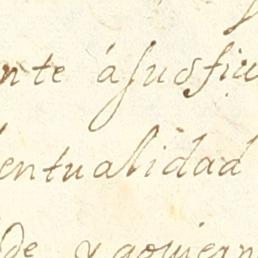 nte á sus fiu
entualidad
de y govier